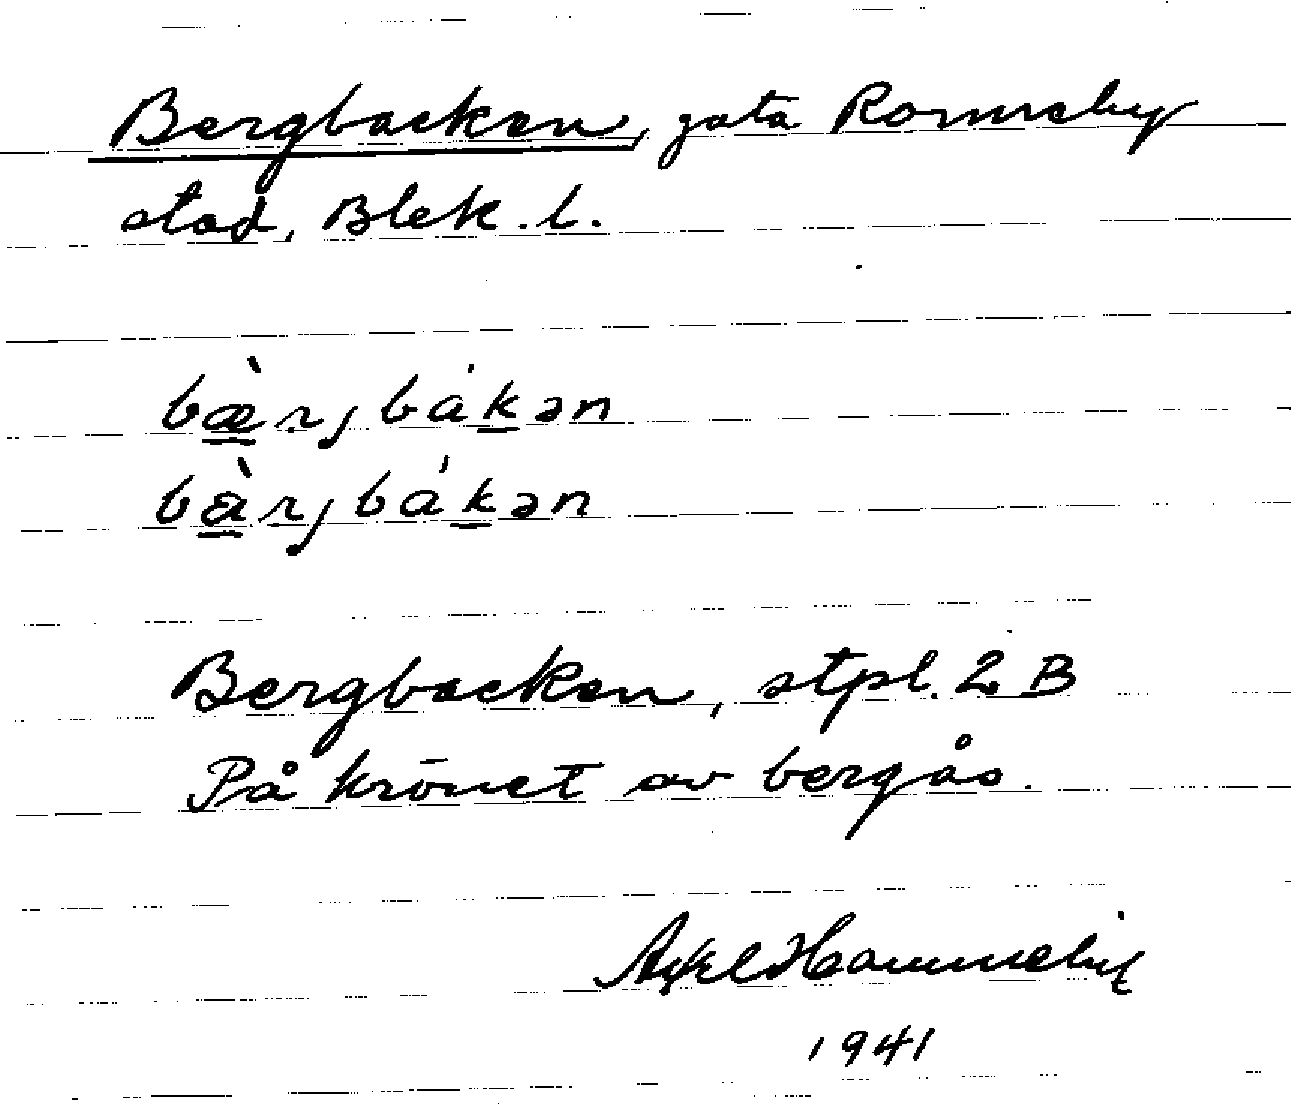 Bergbacken, gata Ronneby
stad, Blek. l.
bæ̀rjbákən
bàrjbákən
Bergbacken, stpl. 2 B
På krönet av bergås.
Axel Hammeby
1941